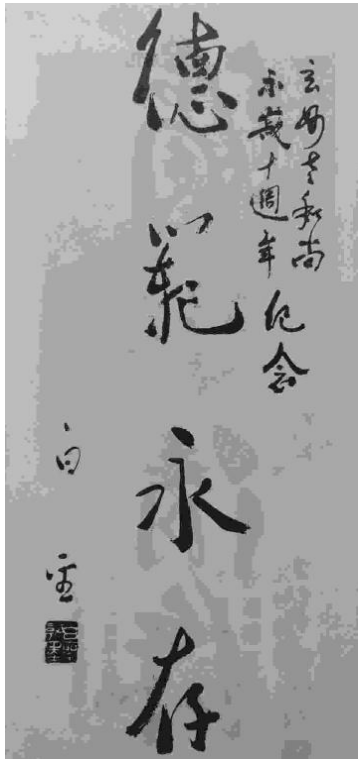 玄老和尚
示寂十週年紀念
德範永存
白